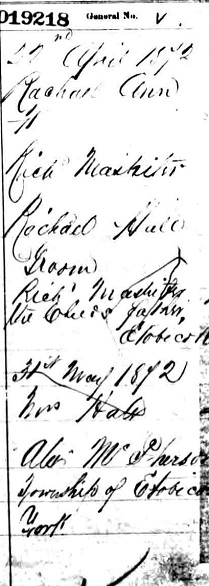 019218 General No. V.
22nd April 1872
Rachael Ann
F
Rich Maskiter
Rachael Hull
Groom
Rich Maskiter
the Child's father
Etobicok
31st May 1872
Mrs
Alex McPherso
Township of Etobico
York